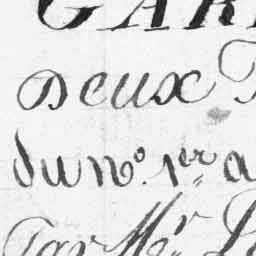 GAR
Deux
du no. 1er a
Par Mr. L